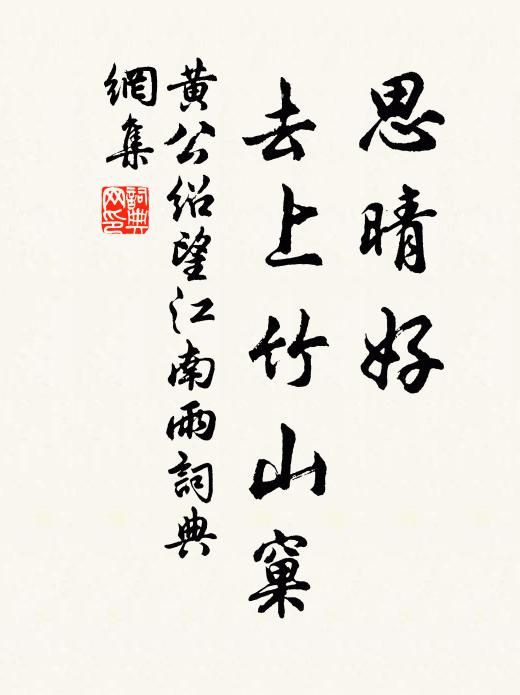 思晴好
去上竹山窠
黄公绍望江南雨詞典
網集
詞典
网印